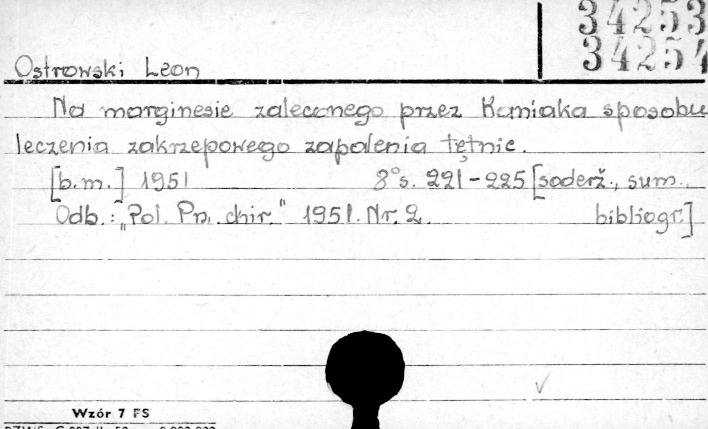 34253
34254
Ostrowski Leon
Na marginesie zaleconego przez Kamiaka sposobu
leczenia zakrzepowego zapalenia tętnic.
[b.m.] 1951 8° s. 221-225 [soderž., sum.,
Odb.: „Pol. Prz. chir." 1951. Nr. 2. bibliogr.]
Wzór 7 FS